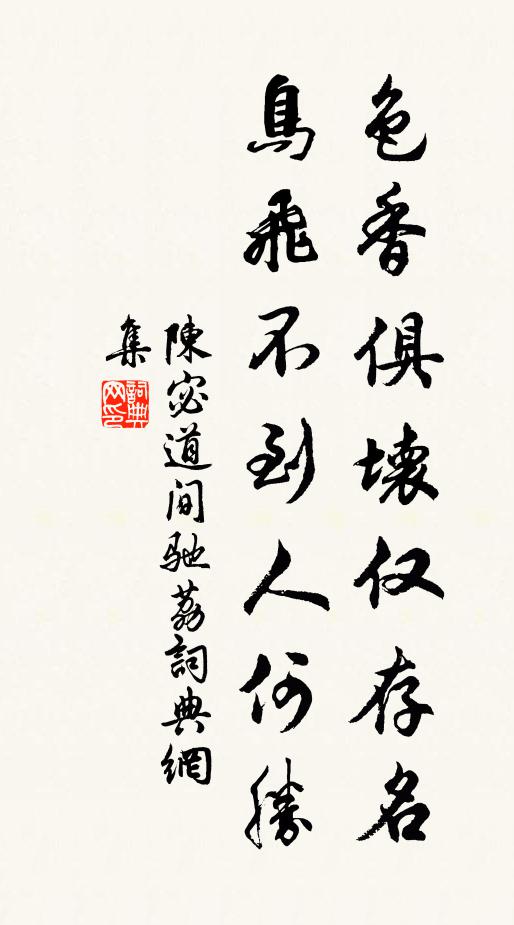 色香俱壞仅存名
鳥飛不到人何勝
陳宓道间馳荔詞典網
集
詞典
网印